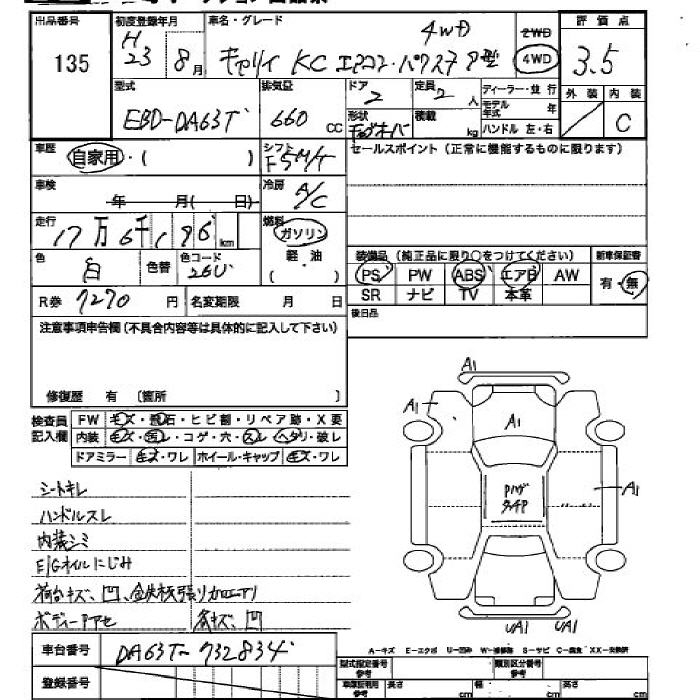 出品番号 初度登録年月 車名・グレード 評価点
135 H23 8月 キャリイ KC エアコン・パワステ 4WD 2WD 4WD 3.5
型式 排気量 ドア 定員 ディーラー・並行 外装 内装
EBD-DA63T 660cc 2 2人 モデル年式 年 C
形状 積載 kg ハンドル 左・右
車歴 自家用・( ) シフト F5M/T セールスポイント(正常に機能するものに限ります)
車検 年 月( 日) 冷房 A/C
走行 17万6千196km 燃料 ガソリン
色 白 色替 色コード 26U 軽油
( )
装備品(純正品に限り○をつけてください) 新車保証書
PS PW ABS エアB AW 有・無
SR ナビ TV 本革
R券 7270円 名変期限 月 日 後日品
注意事項申告欄(不具合内容等は具体的に記入して下さい)
修復歴 有〔箇所 〕
検査員記入欄 FW キズ・飛石・ヒビ割・リペア跡・X要
内装 キズ・汚レ・コゲ・穴・スレ・ヘタリ・破レ
ドアミラー キズ・ワレ ホイール・キャップ キズ・ワレ
A1
A1
A1
A1
UA1 UA1
シートキレ
ハンドルスレ
内装シミ
E/Gオイルにじみ
荷台キズ、凹、鉄板張リ
ボディー 各キズ、凹
車台番号 DA63T-732834
登録番号
A-キズ E-エクボ U-凹み W-補修跡 S-サビ C-腐食 XX-交換済
型式指定番号 類別区分番号
車庫証明用参考 長さ cm 幅 cm cm